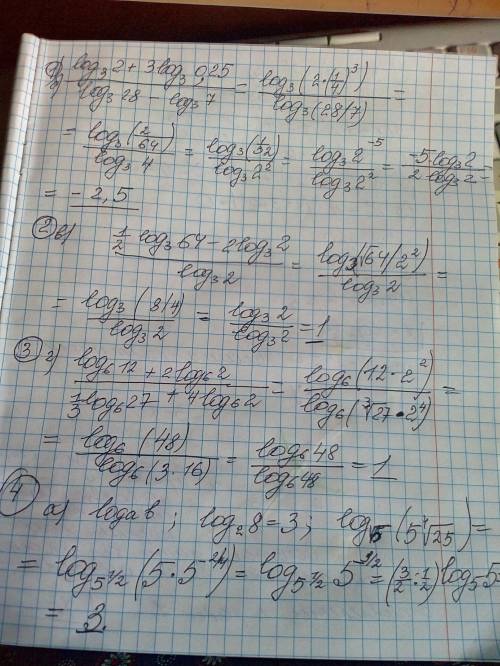 log₃2 + 3log₃0,25 / log₃28 − log₃7 = log₃(2·(1/4)³) / log₃(28/7) =
= log₃(2/64) / log₃4 = log₃(1/32) / log₃2² = log₃2⁻⁵ / log₃2² = −5·log₃2 / 2·log₃2 =
= −2,5
② в) 1/2·log₃64 − 2log₃2 / log₃2 = log₃(√64/2²) / log₃2 =
= log₃(8/4) / log₃2 = log₃2 / log₃2 = 1
③ г) log₆12 + 2log₆2 / 1/3log₆27 + 4log₆2 = log₆(12·2²) / log₆(∛27·2⁴) =
= log₆(48) / log₆(3·16) = log₆48 / log₆48 = 1
④ а) logₐb ; log₂8 = 3 ; (5⁴√25) =
= log 5^1/2 (5·5^2/4) = log 5^1/2 5^3/2 = (3/2 : 1/2) log₅5
= 3.